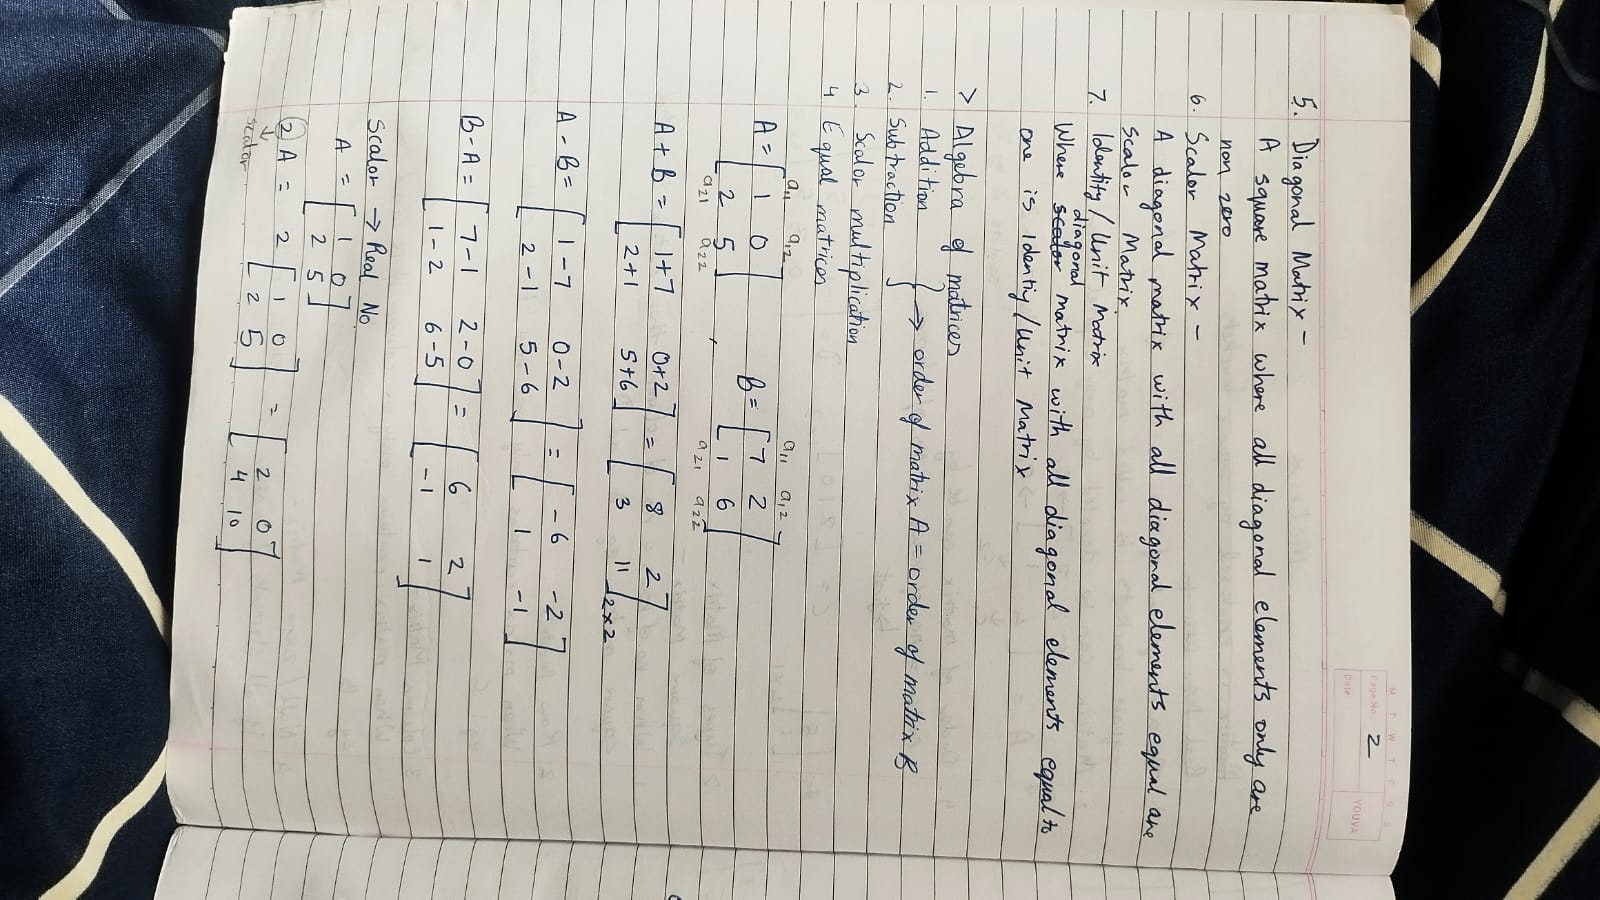 M T W T F S S
Page No.: 2
YOUVA
Date:
5. Diagonal Matrix -
A square matrix where all diagonal elements only are
non zero
6. Scalor Matrix -
A diagonal matrix with all diagonal elements equal are
Scalor Matrix.
7. Identity / Unit Matrix
diagonal
Where scalor matrix with all diagonal elements equal to
one is Identiy / Unit Matrix
> Algebra of matrices
1. Addition
} → order of matrix A = order of matrix B
2. Subtraction
3. Scalor multiplication
4 Equal matrices
a11 a12 a11 a12
A = [ 1 0 B = [ 7 2 ]
2 5 ] , 1 6
a21 a22 a21 a22
A + B = [ 1+7 0+2 ] = [ 8 2 ]
2+1 5+6 3 11 2×2
A - B = [ 1-7 0-2 ] = [ -6 -2 ]
2-1 5-6 1 -1
B-A = [ 7-1 2-0 ] = [ 6 2 ]
1-2 6-5 -1 1
Scalor → Real No.
A = [ 1 0 ]
2 5
2 A = 2 [ 1 0 ] = [ 2 0 ]
↓ 2 5 4 10
scalor